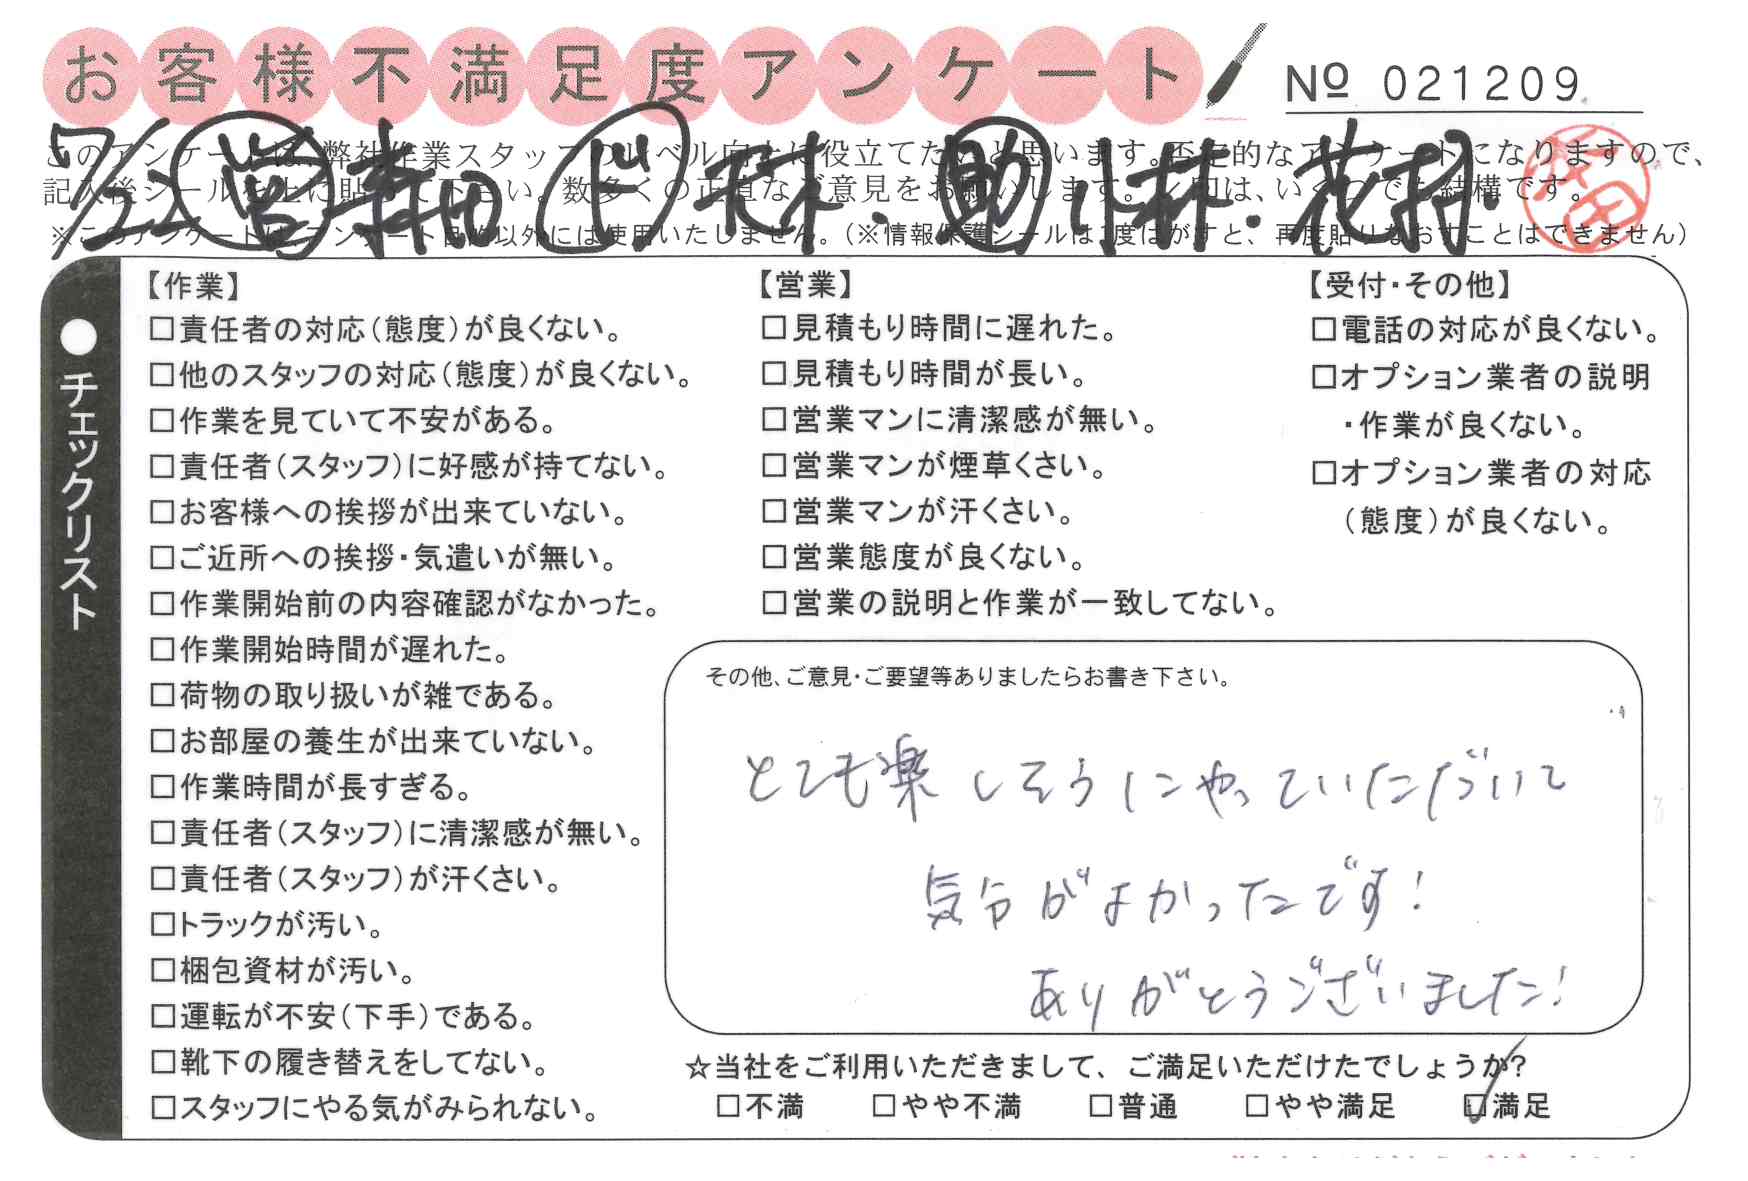 お客様不満足度アンケート
№ 021209
7/22 営 森田 ド 大林、助 小林・花村
このアンケートは、弊社作業スタッフのレベル向上に役立てたいと思います。否定的なアンケートになりますので、
記入後シールを上に貼って下さい。数多くの正直なご意見をお願いします。/回は、いくつでも結構です。
※このアンケートは、アンケート目的以外には使用いたしません。（※情報保護シールは1度はがすと、再度貼りなおすことはできません）
●チェックリスト
【作業】
□責任者の対応（態度）が良くない。
□他のスタッフの対応（態度）が良くない。
□作業を見ていて不安がある。
□責任者（スタッフ）に好感が持てない。
□お客様への挨拶が出来ていない。
□ご近所への挨拶・気遣いが無い。
□作業開始前の内容確認がなかった。
□作業開始時間が遅れた。
□荷物の取り扱いが雑である。
□お部屋の養生が出来ていない。
□作業時間が長すぎる。
□責任者（スタッフ）に清潔感が無い。
□責任者（スタッフ）が汗くさい。
□トラックが汚い。
□梱包資材が汚い。
□運転が不安（下手）である。
□靴下の履き替えをしてない。
□スタッフにやる気がみられない。
【営業】
□見積もり時間に遅れた。
□見積もり時間が長い。
□営業マンに清潔感が無い。
□営業マンが煙草くさい。
□営業マンが汗くさい。
□営業態度が良くない。
□営業の説明と作業が一致してない。
【受付・その他】
□電話の対応が良くない。
□オプション業者の説明
・作業が良くない。
□オプション業者の対応
（態度）が良くない。
その他、ご意見・ご要望等ありましたらお書き下さい。
とても楽しそうにやっていただいて
気分がよかったです！
ありがとうございました！
☆当社をご利用いただきまして、ご満足いただけたでしょうか？
□不満 □やや不満 □普通 □やや満足 ☑満足